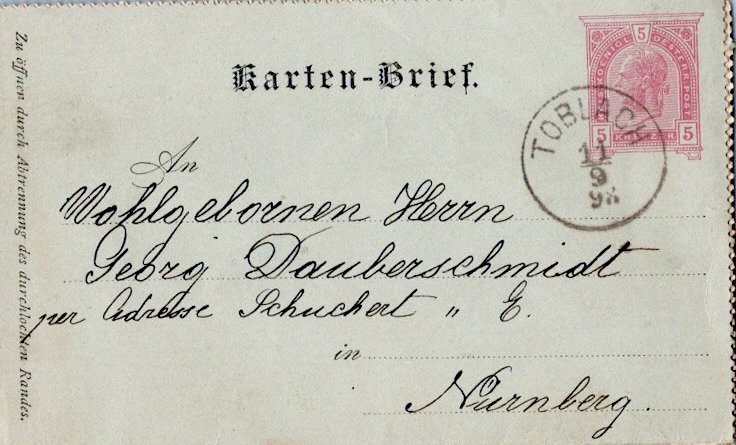 Karten-Brief.
5
KAIS. KOENIGL. OESTERR. POST.
5 KREUZER 5
TOBLACH
11
9
98
An
Wohlgebornen Herrn
Georg Dauberschmidt
per Adresse Schuchert " E.
in
Nürnberg.
Zu öffnen durch Abtrennung des durchlochten Randes.